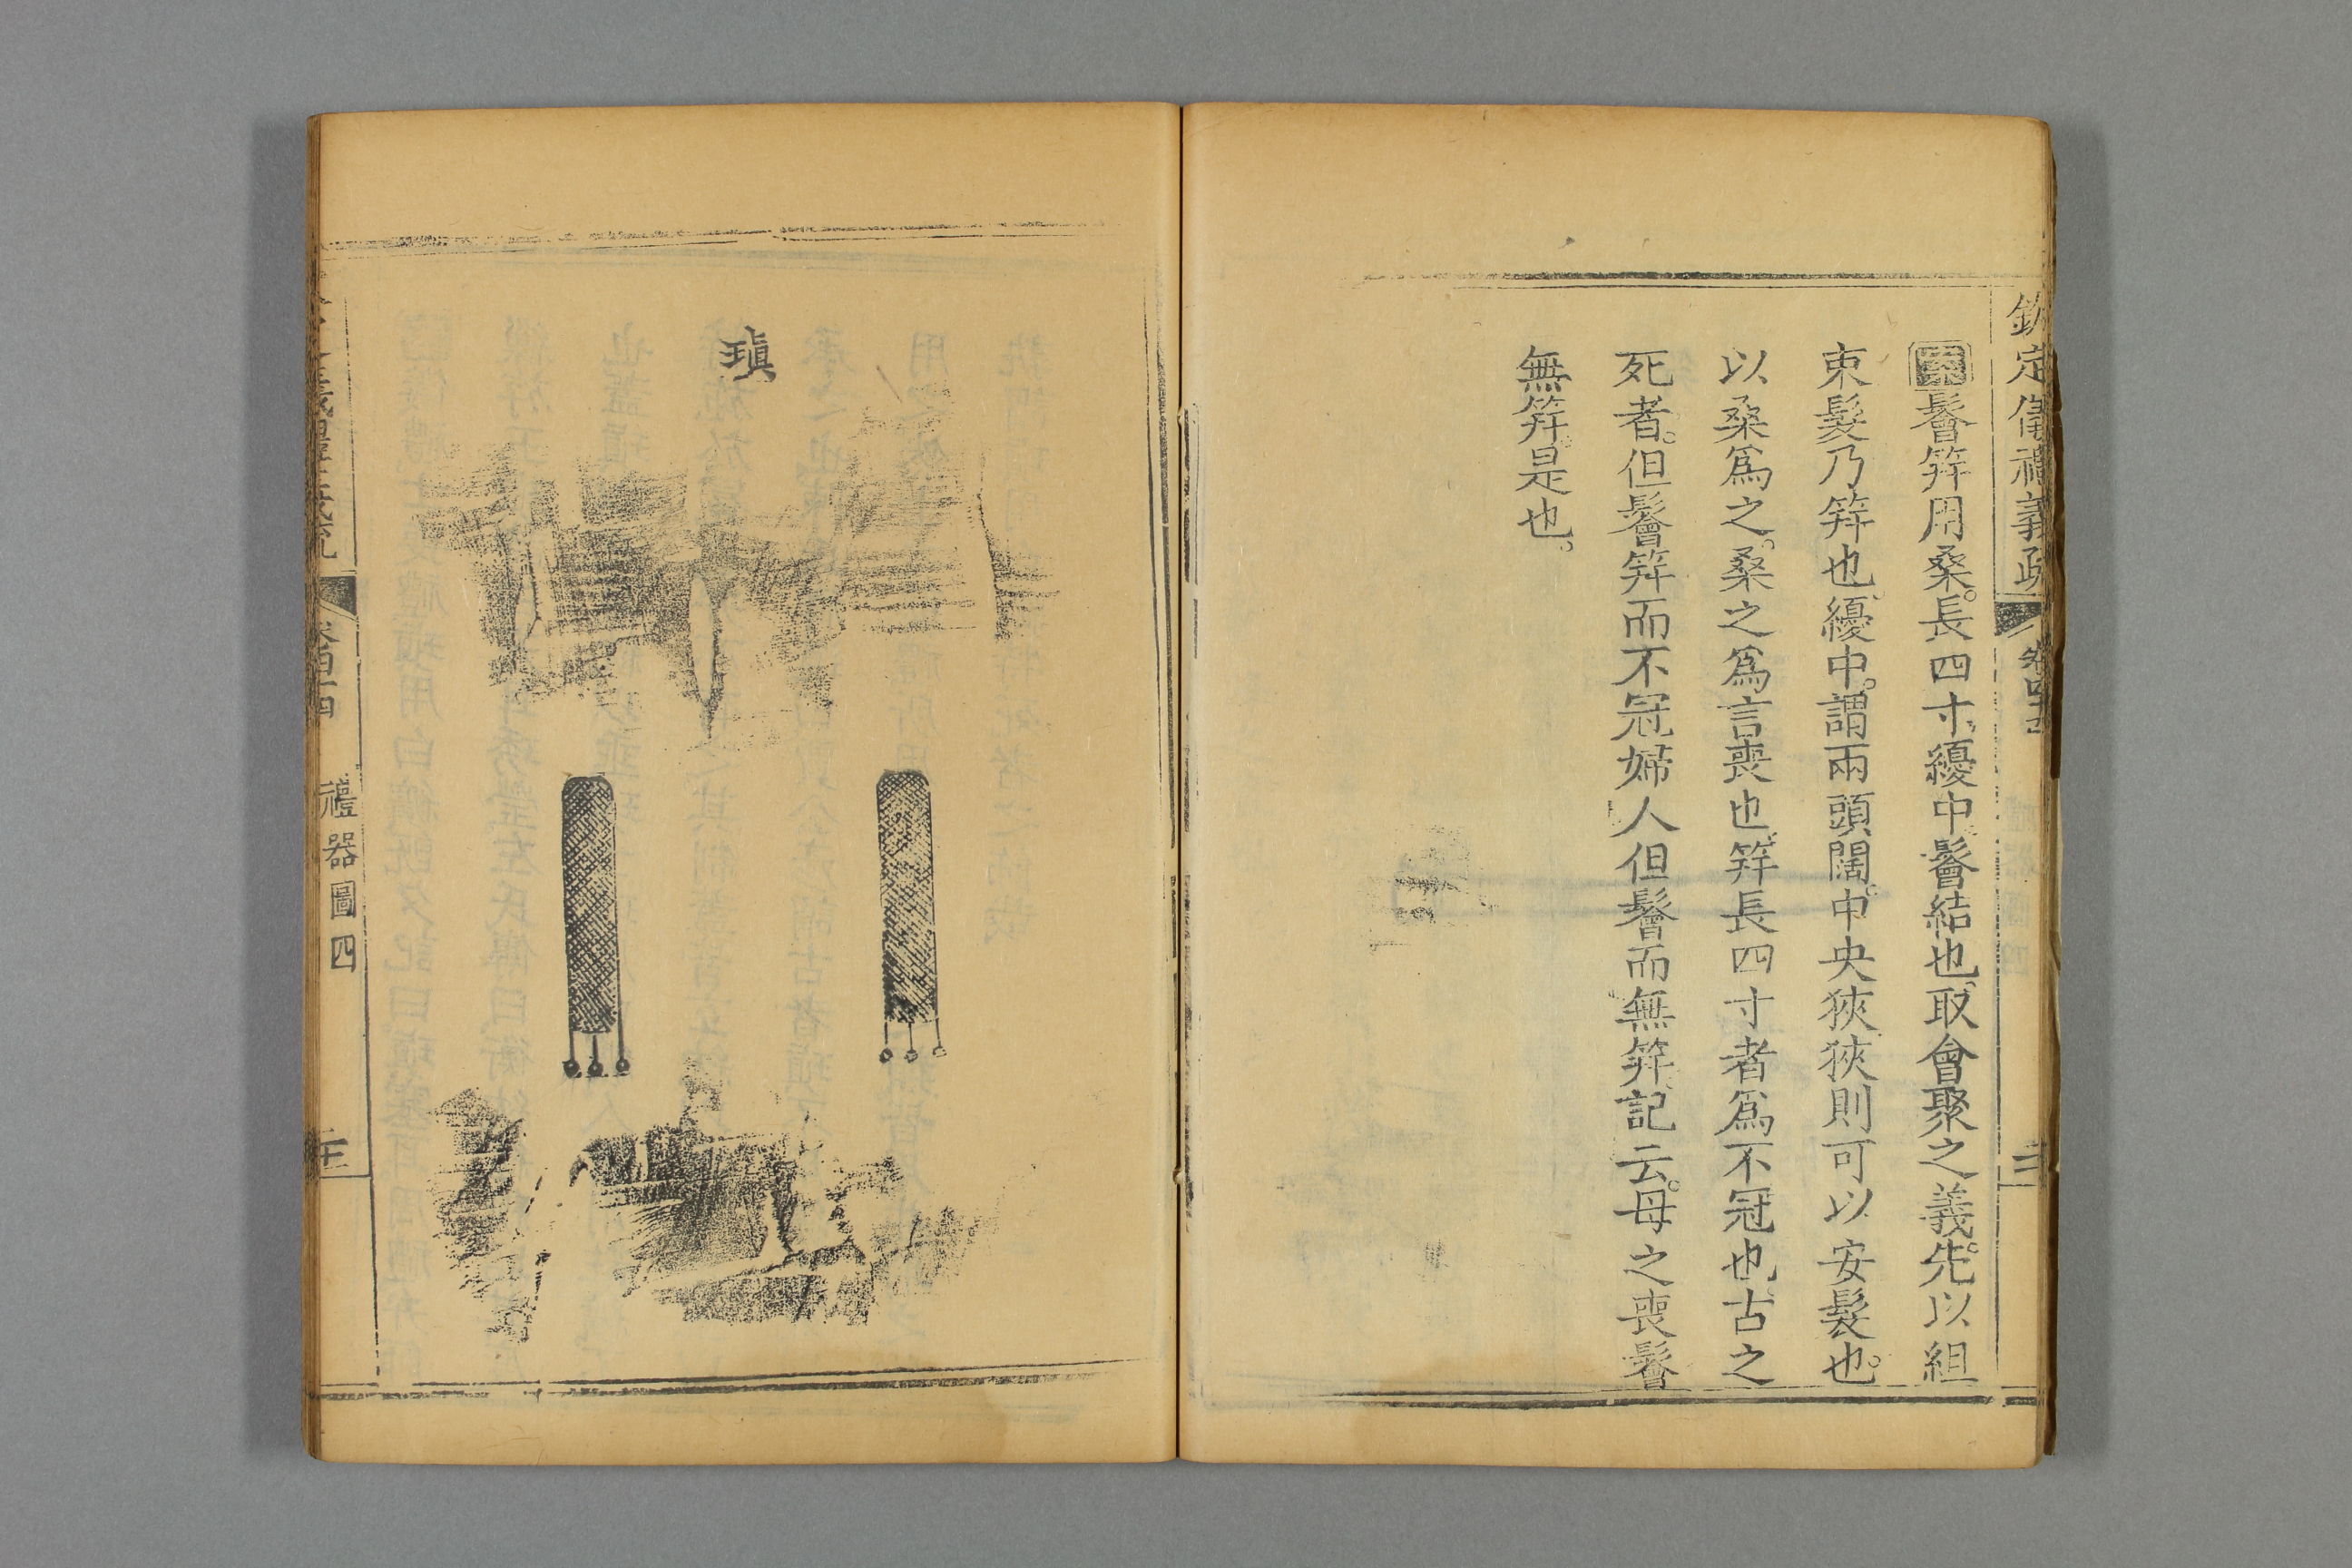 欽定儀禮義疏
鬠笄用桑。長四寸、纋中、鬠結也、取會聚之義。先以組
束髮乃笄也、纋中。謂兩頭闊。中央狹、狹則可以安髮也。
以桑爲之。桑之爲言喪也、笄長四寸者爲不冠也、古之
死者。但鬠笄而不冠婦人但鬠而無笄、記云。母之喪鬠
無笄。是也。
瑱
禮器圖四